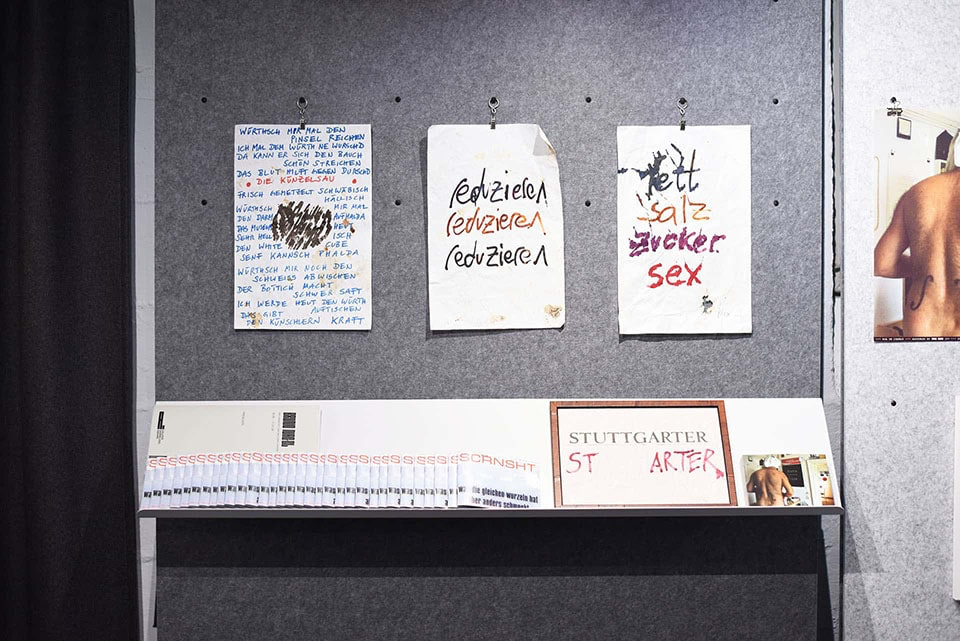 WÜRTHSCH MIR MAL DEN
PINSEL REICHEN
ICH MAL DEM WÜRTH NE WURSCHD
DA KANN ER SICH DEN BAUCH
SCHÖN STREICHEN
DAS BLUT HILFT GEGEN DURSCHD
• DIE KÜNZELSAU •
FRISCH GEMETZELT SCHWÄBISCH
HÄLLISCH
WÜRTHSCH MIR MAL
DEN DARM AUFHALDA
DAS MUSEUM HEUT
SEHR HELL ISCH
DEN WHITE CUBE
SENF KANNSCH PHALDA
WÜRTHSCH MIR NOCH DEN
SCHWEISS ABWISCHEN
DER BOTTICH MACHT
SCHWER SAFT
ICH WERDE HEUT DEN WÜRTH
AUFTISCHEN
DAS GIBT
DEN KÜNSCHLERN KRAFT
reduzieren
reduzieren
reduzieren
fett
salz
zucker
sex
SCRNSHT
die gleichen wurzeln hat
anders
STUTTGARTER
ST ARTER